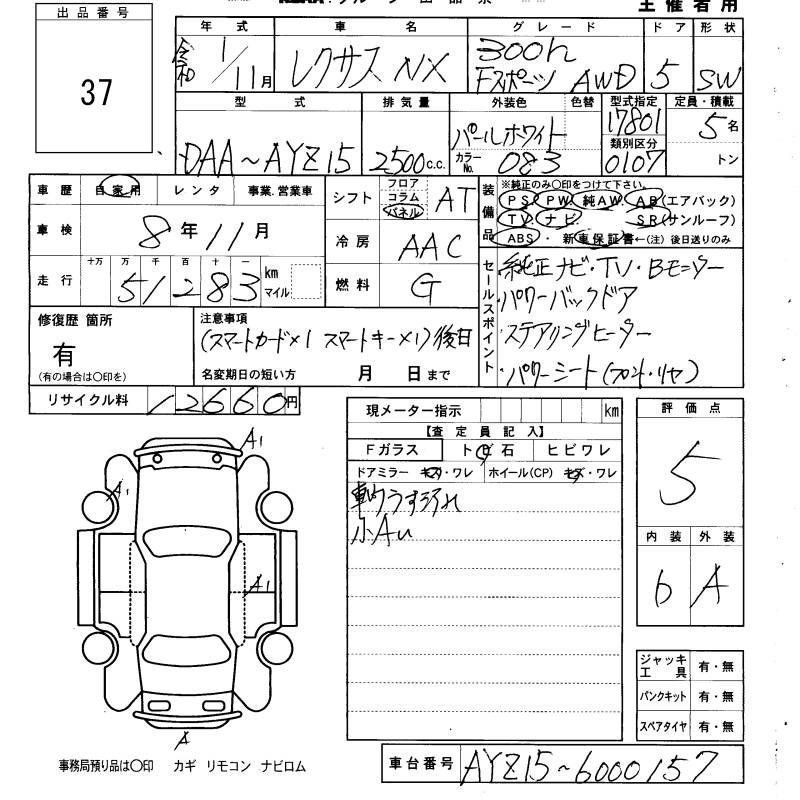 主催者用
出品番号
37
年式 車名 グレード ドア 形状
令和 1/11月 レクサス NX 300h Fスポーツ AWD 5 SW
型式 排気量 外装色 色替 型式指定 定員・積載
DAA~AYZ15 2500c.c. パールホワイト 17801 5名
カラーNo. 083 類別区分 0107 トン
車歴 自家用 レンタ 事業.営業車
車検 8年11月
走行 十万 万 千 百 十 一
51283 km マイル
シフト フロア コラム パネル AT
冷房 AAC
燃料 G
装備品 ※純正のみ〇印をつけて下さい。
PS PW 純AW AB(エアバック)
TV ナビ SR(サンルーフ)
ABS・新車保証書←(注)後日送りのみ
セールスポイント
純正ナビ・TV・Bモニター
パワーバックドア
ステアリングヒーター
パワーシート(フロント・リヤ)
修復歴 箇所
有
(有の場合は〇印を)
注意事項
(スマートカード×1 スマートキー×1)後日
名変期日の短い方 月 日まで
リサイクル料 12660円
現メーター指示 km
【査定員記入】
Fガラス トビ石 ヒビワレ
ドアミラー キズ・ワレ ホイール(CP) キズ・ワレ
車内うす汚れ
小AU
評価点
5
内装 外装
6 A
ジャッキ工具 有・無
パンクキット 有・無
スペアタイヤ 有・無
A1
A1
A1
A
事務局預り品は〇印 カギ リモコン ナビロム
車台番号 AYZ15~6000157